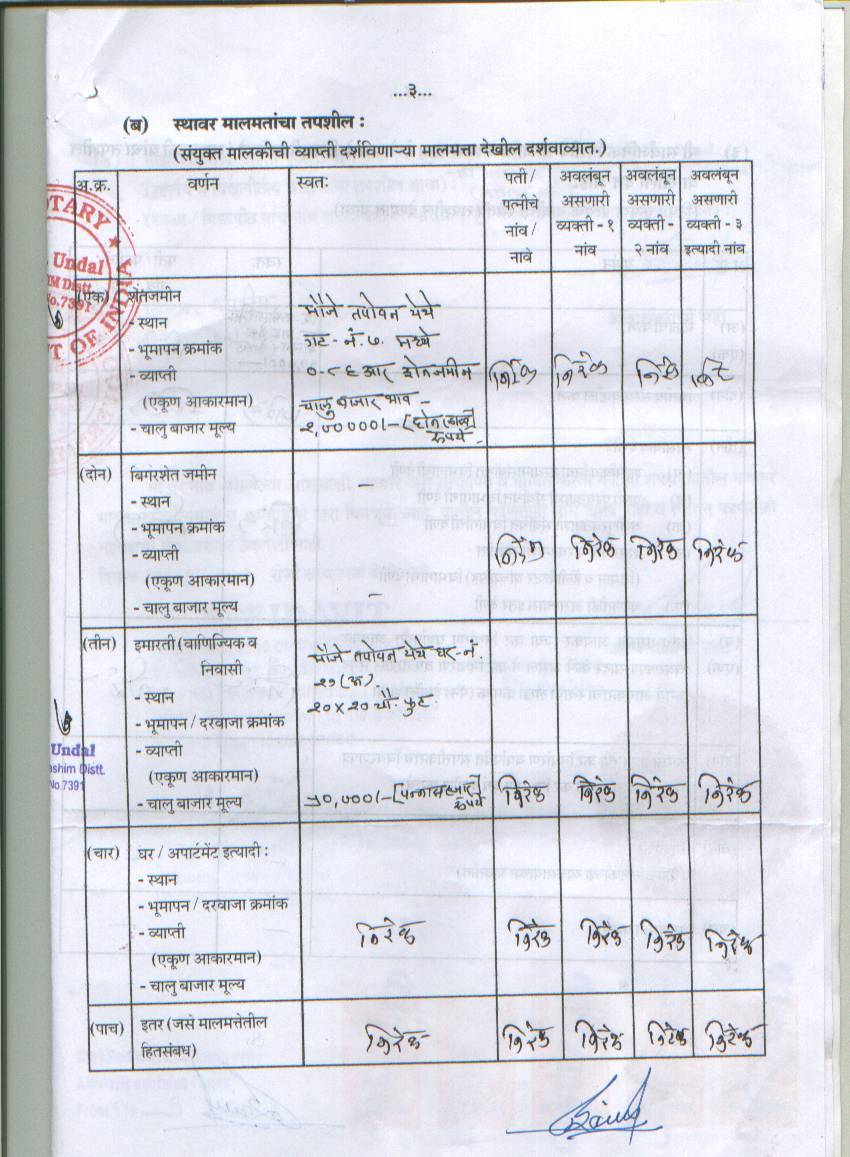 ...३...
(ब) स्थावर मालमतांचा तपशील :
(संयुक्त मालकीची व्याप्ती दर्शविणाऱ्या मालमत्ता देखील दर्शवाव्यात.)
अ.क्र. वर्णन स्वतः पती / पत्नीचे नांव / नावे अवलंबून असणारी व्यक्ती - १ नांव अवलंबून असणारी व्यक्ती - २ नांव अवलंबून असणारी व्यक्ती - ३ इत्यादी नांव
OTARY
Undal
M Distt
No.7391
T OF INDIA
(एक) शेतजमीन
- स्थान
- भूमापन क्रमांक
- व्याप्ती
(एकूण आकारमान)
- चालु बाजार मूल्य
मौजे तपोवन येथे
गट - नं. ७. मध्ये
०-८६ आर शेतजमीन
चालु बाजार भाव -
२,०००००/- [दोन लाख रुपये]
निरंक निरंक निरंक निरंक
(दोन) बिगरशेत जमीन
- स्थान
- भूमापन क्रमांक
- व्याप्ती
(एकूण आकारमान)
- चालु बाजार मूल्य
–
–
निरंक निरंक निरंक निरंक
(तीन) इमारती (वाणिज्यिक व
निवासी
- स्थान
- भूमापन / दरवाजा क्रमांक
- व्याप्ती
(एकूण आकारमान)
- चालु बाजार मूल्य
मौजे तपोवन येथे घर - नं.
२० x २० चौ. फुट
५०,०००/- [पन्नास हजार रुपये]
निरंक निरंक निरंक निरंक
Undal
ashim Distt.
No.7391
(चार) घर / अपार्टमेंट इत्यादी :
- स्थान
- भूमापन / दरवाजा क्रमांक
- व्याप्ती
(एकूण आकारमान)
- चालु बाजार मूल्य
निरंक निरंक निरंक निरंक निरंक
(पाच) इतर (जसे मालमत्तेतील
हितसंबध)
निरंक निरंक निरंक निरंक निरंक